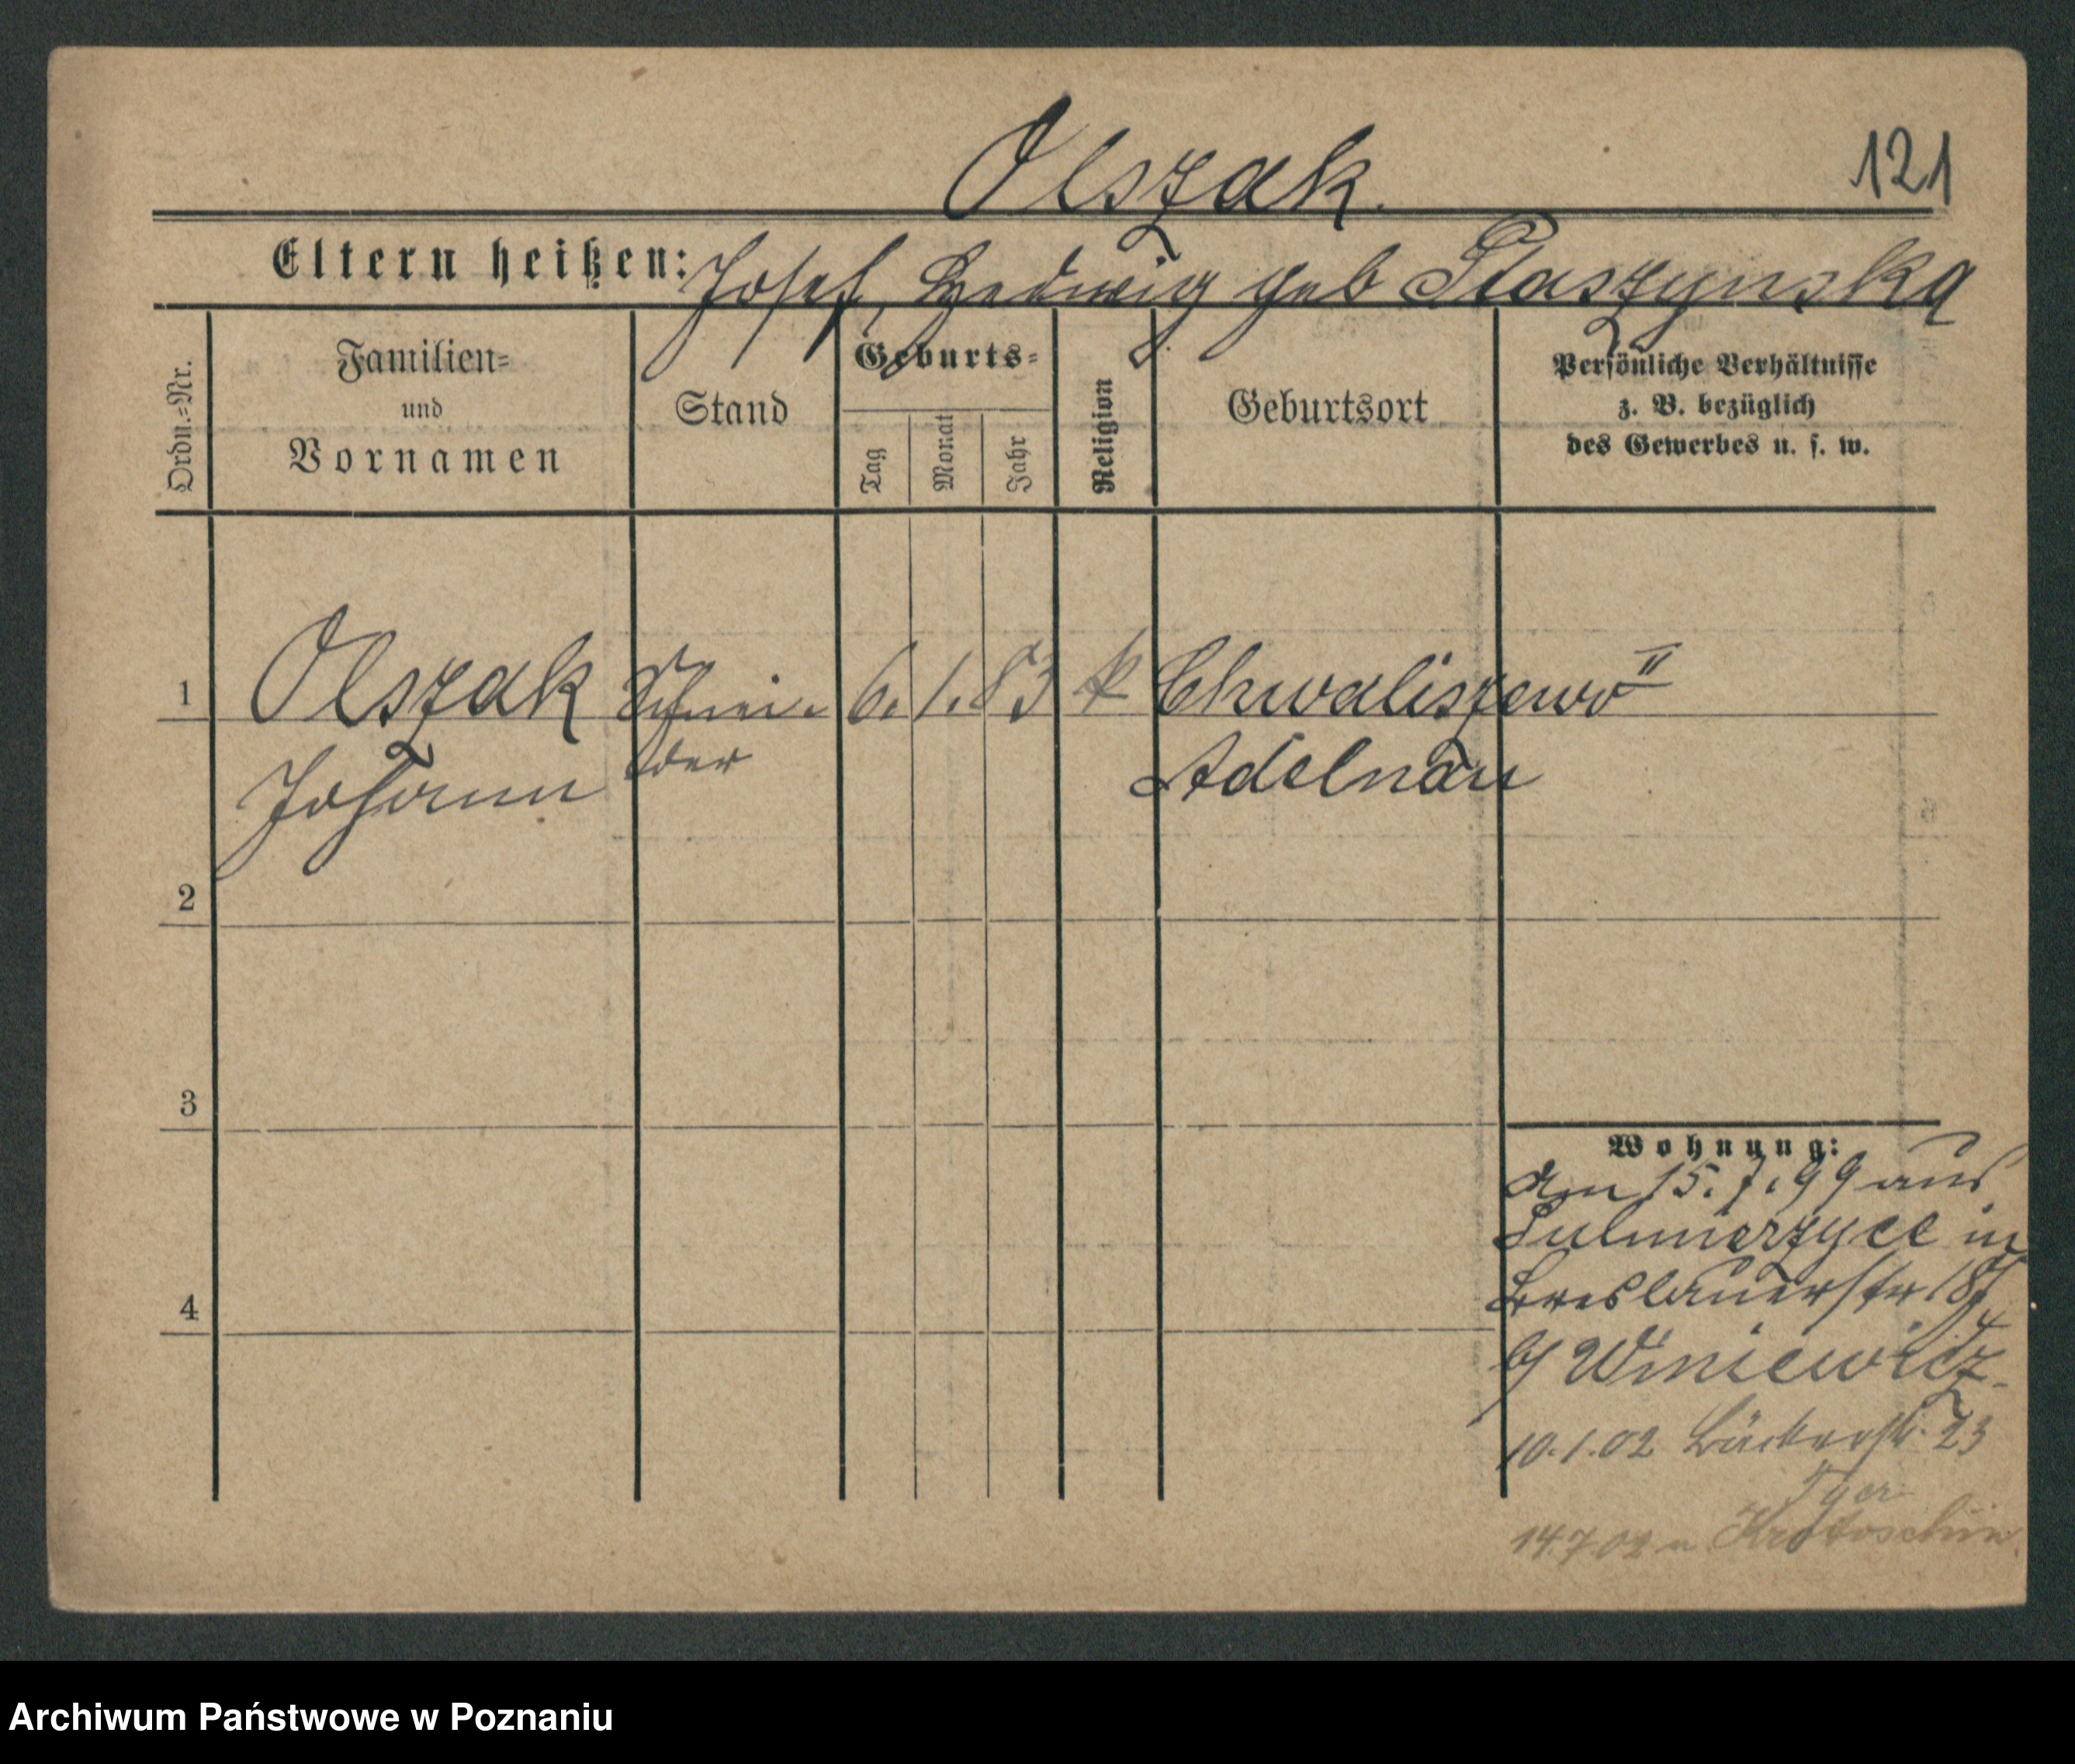 Olszak.
121
Eltern heißen: Josef, Hedwig geb Staszynska
Ordn.=Nr.
Familien=
und
Vornamen
Stand
Geburts=
Tag
Monat
Jahr
Religion
Geburtsort
Persönliche Verhältnisse
z. B. bezüglich
des Gewerbes u. s. w.
1 Olszak Schnei- 6. 1. 83 k Chwaliszewo II
Johann der Adelnau
2
3
4
Wohnung:
am 15. 7. 99 aus
Sulmierzyce in
Breslauerstr 18
b/ Winiewicz
10.1.02 Bäckerstr. 23
14.7.02 n Krotoschin
Archiwum Państwowe w Poznaniu